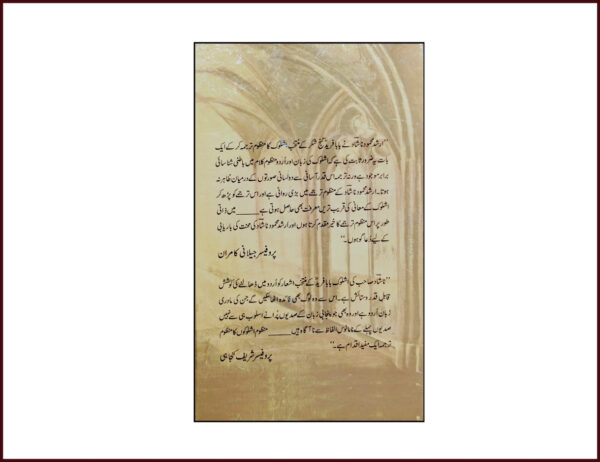 "ارشد محمود ناشاد نے بابا فرید گنج شکر کے منتخب اشلوک کا منظوم ترجمہ کر کے ایک
بات یہ ضرور ثابت کی ہے کہ اشلوک کی زبان اور اُردو منظوم کلام میں باطنی شناسائی
برابر موجود ہے ورنہ ترجمہ اس قدر آسانی سے دو لسانی صورتوں کے درمیان ظاہر نہ
ہوتا۔ ارشد محمود ناشاد کے منظوم ترجمے میں بڑی روانی ہے اور اس ترجمے کو پڑھ کر
اشلوک کے معانی کی قریب ترین معرفت بھی حاصل ہوتی ہے ____ میں ذاتی
طور پر اس منظوم ترجمے کا خیر مقدم کرتا ہوں اور ارشد محمود ناشاد کی محنت کی باریابی
کے لیے دُعا گو ہوں۔"
پروفیسر جیلانی کامران
"ناشاد صاحب کی اشلوک بابا فرید کے منتخب اشعار کو اُردو میں ڈھالنے کی کوشش
قابلِ قدر و ستائش ہے۔ اس سے وہ لوگ بھی فائدہ اٹھا سکیں گے جن کی مادری
زبان اُردو ہے اور وہ بھی جو پنجابی زبان کے صدیوں پُرانے اسلوب ہی سے نہیں
صدیوں پہلے کے نامانوس الفاظ سے ناآگاہ ہیں ____ منظوم اشلوکوں کا منظوم
ترجمہ ایک مفید اقدام ہے۔"
پروفیسر شریف کنجاہی